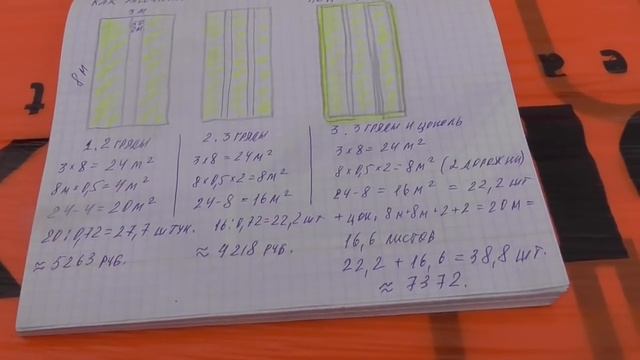 3 м
8 м
1. 2 гряды
3×8=24 м²
8м×0,5=4м²
24-4=20м²
20:0,72=27,7 штук.
≈5263 руб.
2. 3 гряды
3×8=24м²
8×0,5×2=8м²
24-8=16м²
16:0,72=22,2 шт
≈4218 руб.
3. 3 гряды и цоколь
3×8=24м²
8×0,5×2=8м² (2 дорожки)
24-8=16м²=22,2 шт
+ цок. 8м+8м+2+2=20м=
16,6 листов
22,2+16,6=38,8 шт.
≈7372.
t
a